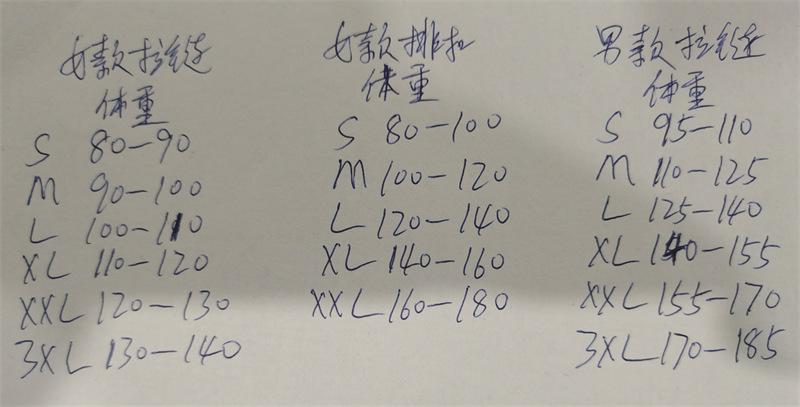 女款拉链
体重
S 80-90
M 90-100
L 100-110
XL 110-120
XXL 120-130
3XL 130-140
女款排扣
体重
S 80-100
M 100-120
L 120-140
XL 140-160
XXL 160-180
男款拉链
体重
S 95-110
M 110-125
L 125-140
XL 140-155
XXL 155-170
3XL 170-185